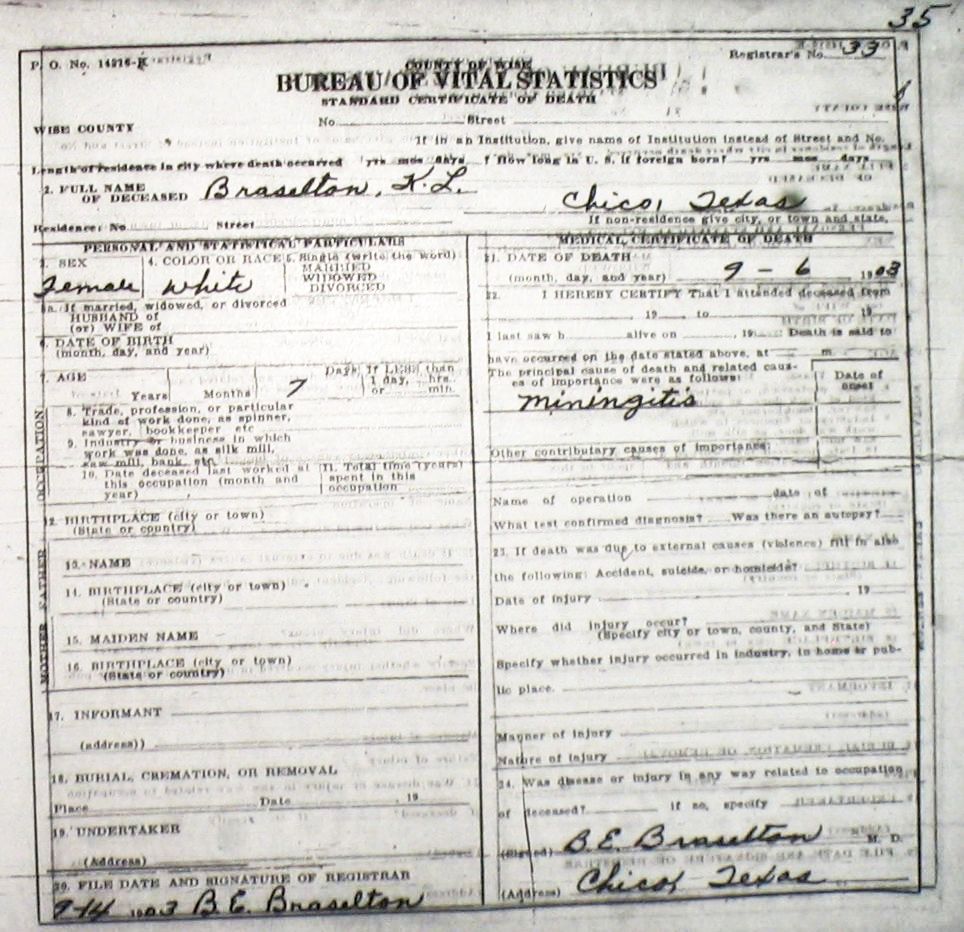 35
P. O. No. 14216-K
Registrar's No. 33
COUNTY OF WISE
BUREAU OF VITAL STATISTICS
STANDARD CERTIFICATE OF DEATH
WISE COUNTY
No. Street
If in an Institution, give name of Institution instead of Street and No.
Length of residence in city where death occurred yrs mos days ? How long in U. S. if foreign born? yrs mos days
2. FULL NAME OF DECEASED Braselton, K.L.
Chico, Texas
Residence: No Street
If non-residence give city, or town and state,
PERSONAL AND STATISTICAL PARTICULARS
3. SEX 4. COLOR OR RACE 5. Single (write the word)
MARRIED
WIDOWED
DIVORCED
Female white
5a. If married, widowed, or divorced
HUSBAND of
(or) WIFE of
6. DATE OF BIRTH
(month, day, and year)
7. AGE Days If LESS than
1 day, hrs.
Years Months 7 or min.
OCCUPATION
8. Trade, profession, or particular
kind of work done, as spinner,
sawyer, bookkeeper etc
9. Industry or business in which
work was done, as silk mill,
saw mill, bank, etc.
10. Date deceased last worked at
this occupation (month and
year)
11. Total time (years)
spent in this
occupation
12. BIRTHPLACE (city or town)
(State or country)
MOTHER FATHER
13. NAME
14. BIRTHPLACE (city or town)
(State or country)
15. MAIDEN NAME
16. BIRTHPLACE (city or town)
(State or country)
17. INFORMANT
(address))
18. BURIAL, CREMATION, OR REMOVAL
Place Date , 19
19. UNDERTAKER
(Address)
20. FILE DATE AND SIGNATURE OF REGISTRAR
9-14 1903 B.E. Braselton
MEDICAL CERTIFICATE OF DEATH
21. DATE OF DEATH
(month, day, and year) 9 - 6 1903
22. I HEREBY CERTIFY That I attended deceased from
, 19 to 19
I last saw h alive on , 19 Death is said to
have occurred on the date stated above, at m.
The principal cause of death and related caus-
es of importance were as follows:
Date of
onset
Miningitis
Other contributary causes of importance:
Name of operation date of
What test confirmed diagnosis? Was there an autopsy?
23. If death was due to external causes (violence) fill in also
the following: Accident, suicide, or homicide?
Date of injury 19
Where did injury occur?
(Specify city or town, county, and State)
Specify whether injury occurred in industry, in home or pub-
lic place.
Manner of injury
Nature of injury
24. Was disease or injury in any way related to occupation
of deceased? if so, specify
(Signed) B.E. Braselton M. D.
(Address) Chico, Texas